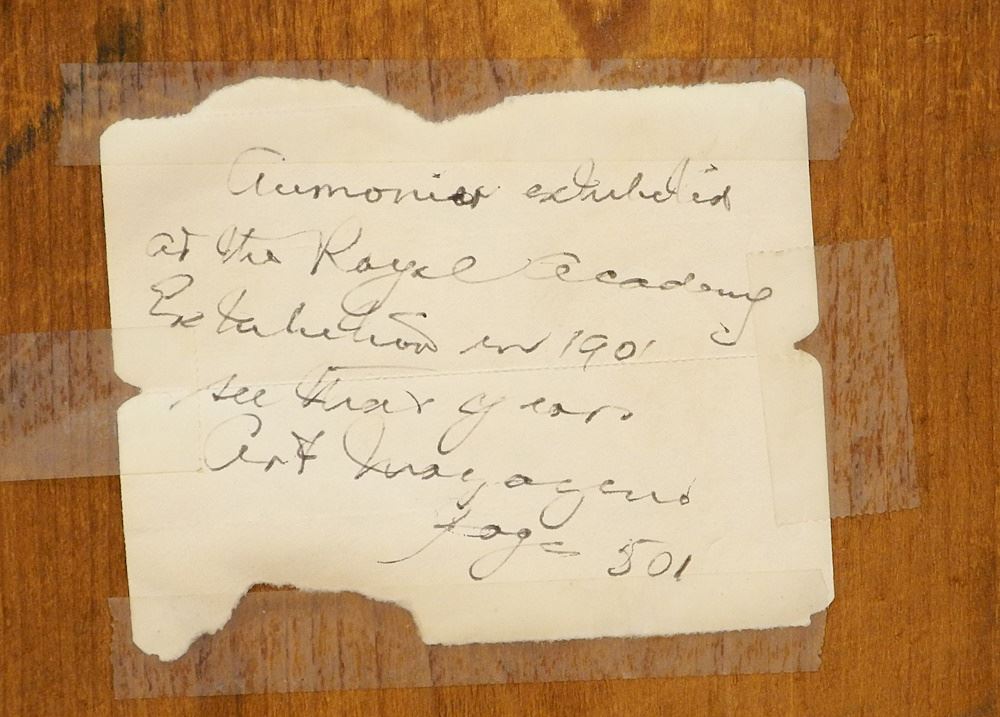 Aumonier exhibited
at the Royal Academy
Exhibition in 1901
see that years
Art Magazene
page 501